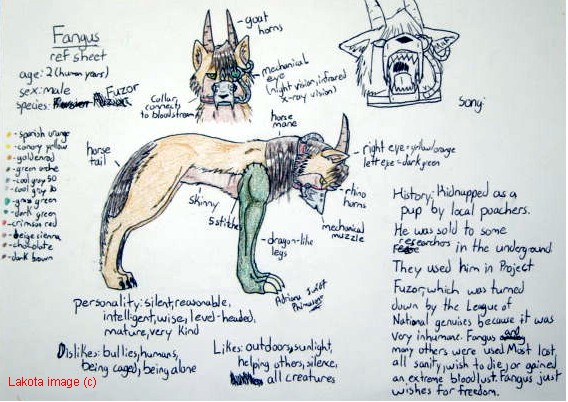 Fangus
ref sheet
age: 2 (human years)
sex: male
species: Fuzor
- spanish orange
- canary yellow
- goldenrod
- green ochre
- cool grey 50
- cool grey 10
- grass green
- dark green
- crimson red
- beige sienna
- chocolate
- dark brown
- goat horns
- mechanical eye
(night vision, infrared
x-ray vision)
Collar, connects
to bloodstream
song:
horse
mane
horse
tail
right eye = yellow/orange
left eye = dark green
rhino
horns
mechanical
muzzle
skinny
5 stitches
dragon-like
legs
personality: silent, reasonable,
intelligent, wise, level-headed,
mature, very kind
Dislikes: bullies, humans,
being caged, being alone
Likes: outdoors, sunlight,
helping others, silence,
all creatures
History: Kidnapped as a
pup by local poachers.
He was sold to some
researchors in the underground
They used him in Project
Fuzor, which was turned
down by the League of
National genuises because it was
very inhumane. Fangus and
many others were used. Most lost
all sanity, wish to die, or gained
an extreme bloodlust. Fangus just
wishes for freedom.
Lakota image (c)